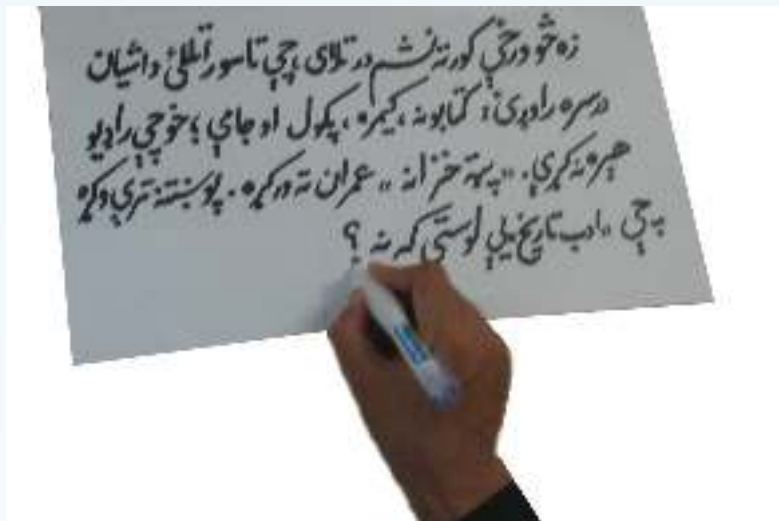 زه خو درځي کور ته نشم درتلای، چې تاسو راتللئ دا شیان
درسره راوړئ: کتابونه، کیمره، پکول او جامې؛ خو چې راډیو
هېره نه کړې. «پټه خزانه» عمران ته ورکړه. پوښتنه ترې وکړه
چې «ادب تاریخ یې لوستی که نه؟